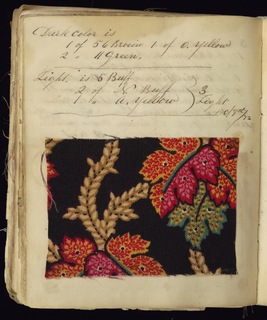 Dark Color is
1 of 56 Brown 1 of O. Yellow
2 " Green.
Light is 5 Buff
2 of Buff
1 " Yellow
3
Light